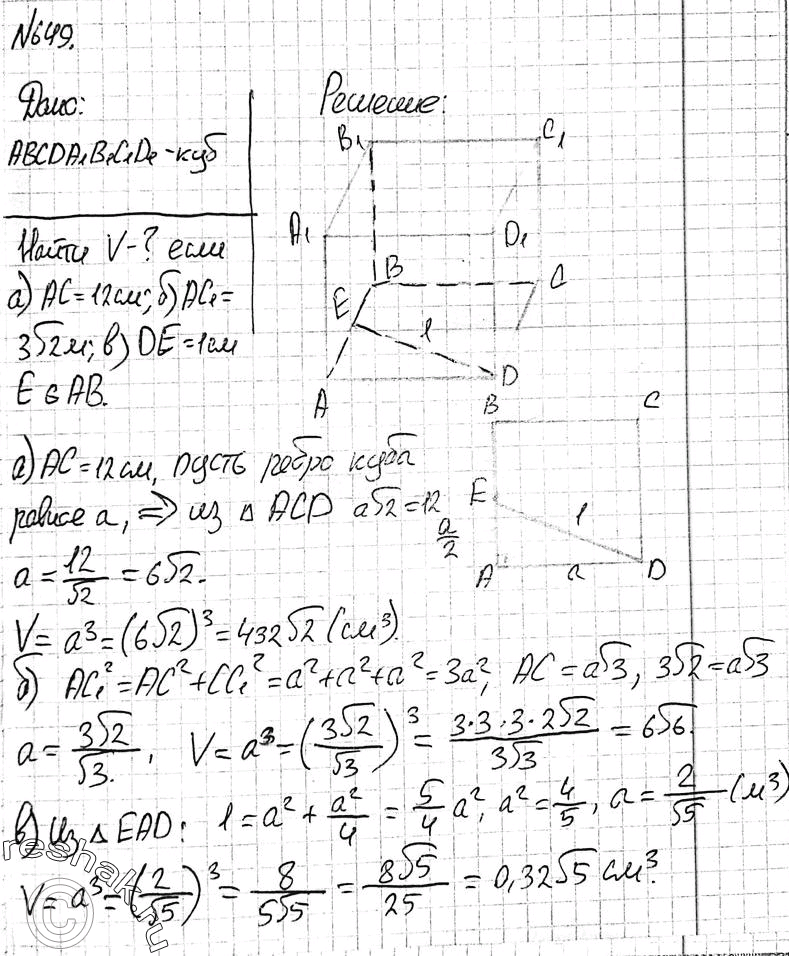 №649.
Дано:
ABCDA₁B₁C₁D₁ - куб
Найти V-? если
а) AC = 12см; б) AC₁ =
3√2 м; в) DE = 1см
E ∈ AB.
Решение:
B₁ C₁
A₁ D₁
B C
E 1
A D
B C
E 1
a/2
A a D
а) AC = 12см, пусть ребро куба
равное a, ⇒ из △ ACD a√2 = 12
a = 12/√2 = 6√2.
V = a³ = (6√2)³ = 432√2 (см³).
б) AC₁² = AC² + CC₁² = a² + a² + a² = 3a², AC = a√3, 3√2 = a√3
a = 3√2/√3. , V = a³ = (3√2/√3)³ = 3·3·3·2√2/3√3 = 6√6.
в) Из △ EAD: 1 = a² + a²/4 = 5/4 a², a² = 4/5, a = 2/√5 (м³)
V = a³ = (2/√5)³ = 8/5√5 = 8√5/25 = 0,32√5 см³.
reshak.ru
©